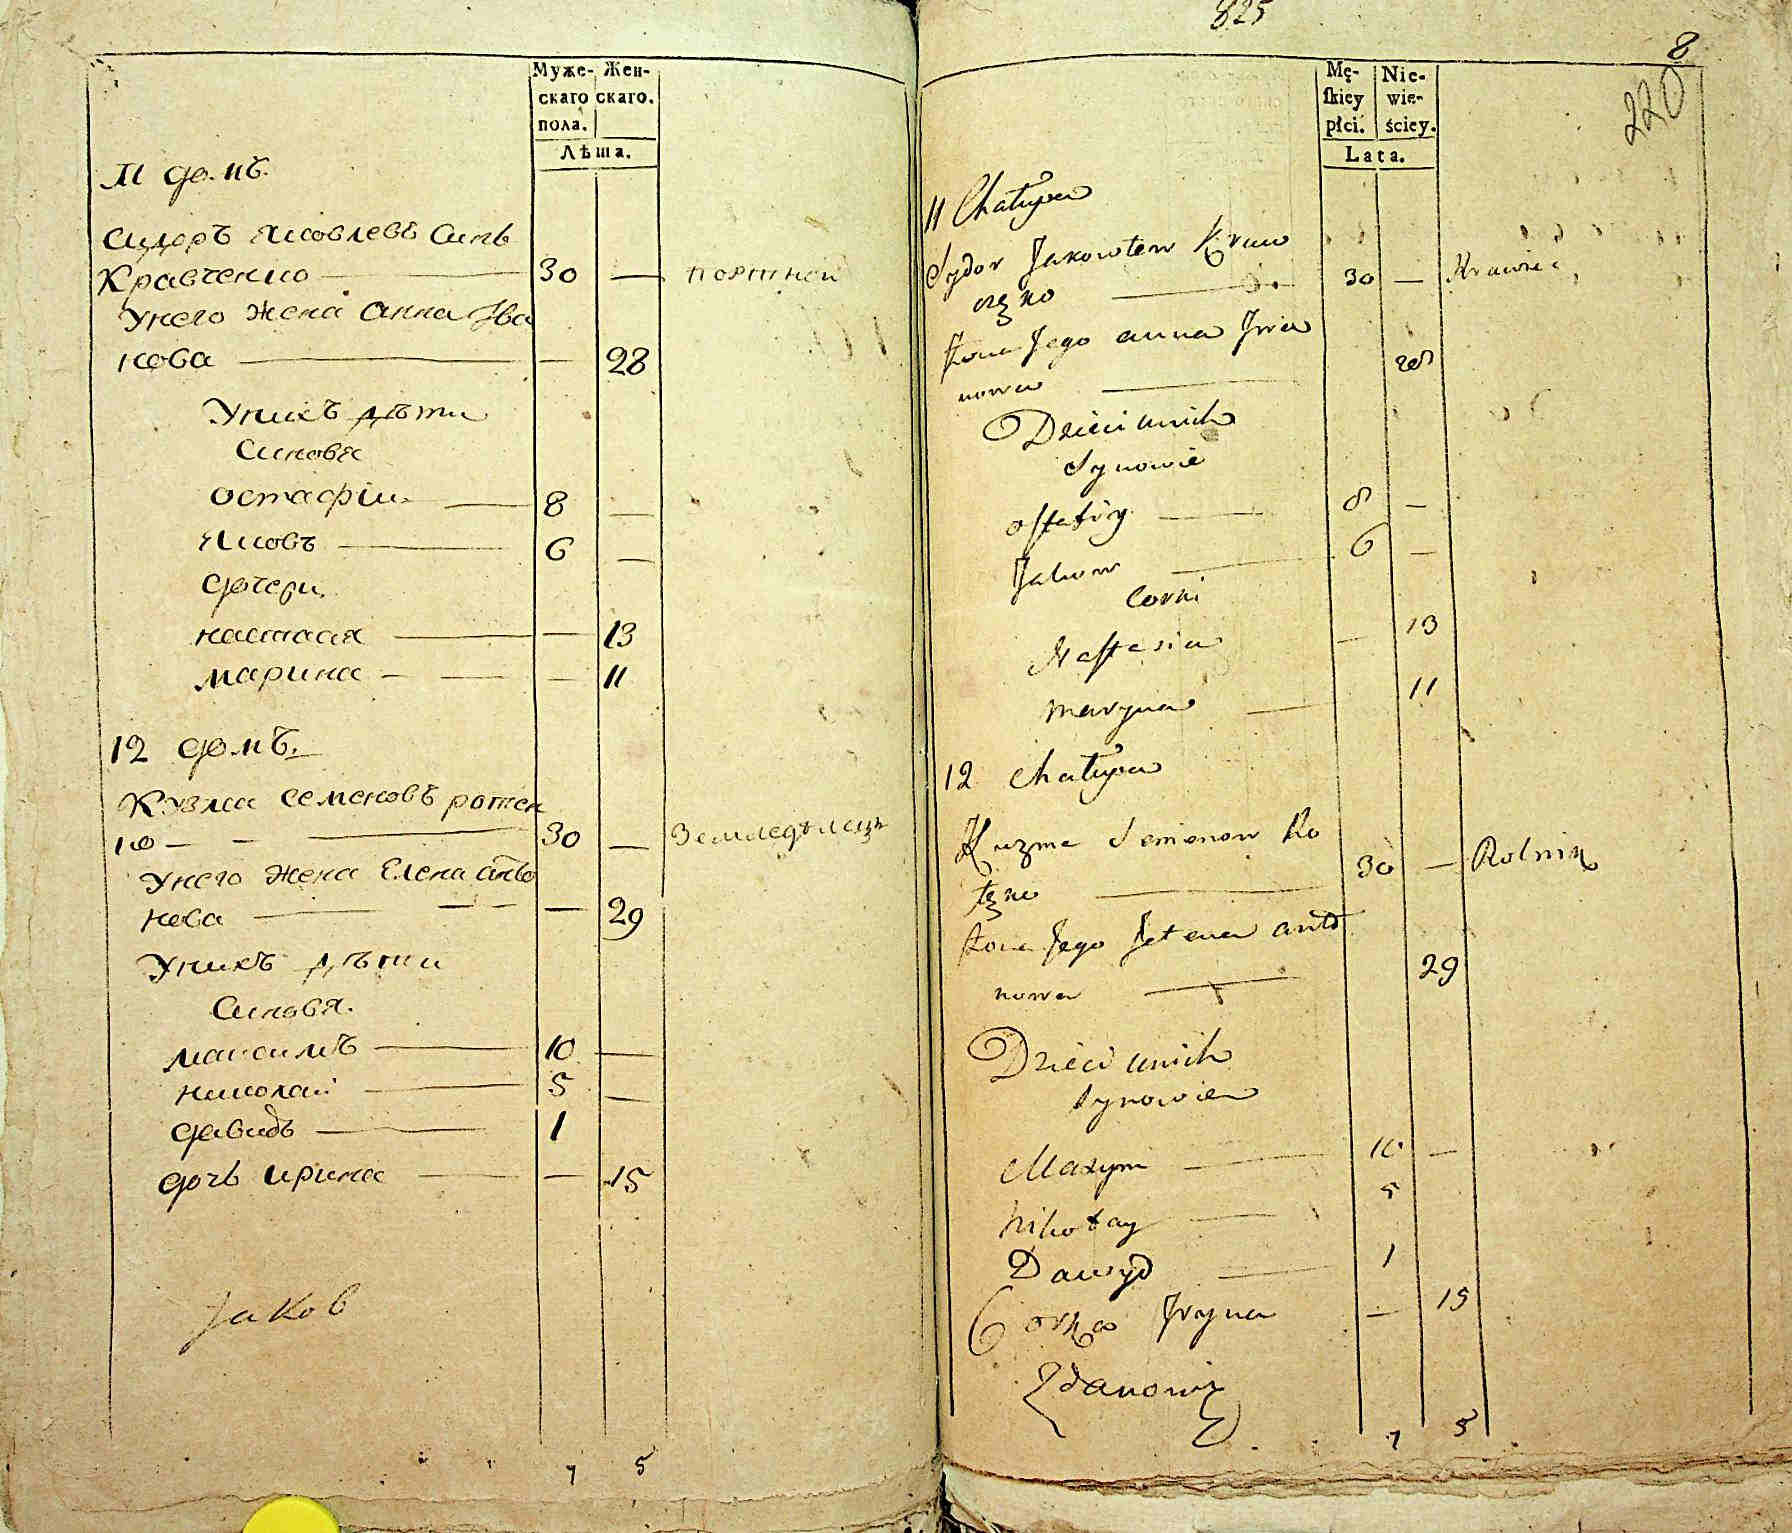 Муже- Жен-
скаго скаго.
пола.
Лѣта.
11 домъ.
Сидоръ Яковлевъ Синъ
Кравченко — 30 — портной
Унего жена Анна Ива
нова — — 28
Унихъ дѣти
Синовя
Остафiи — 8 —
Яковъ — 6 —
дочери
настася — — 13
марина — — — 11
12 домъ.
Кузма Семеновъ ротен
ко — — — 30 — Земледѣлецъ
Унего жена Елена анто
нова — — — — 29
Унихъ дѣти
Синовя.
максимъ — 10 —
николай — 5 —
давидъ — 1
дочь ирина — — 15
Jakob
7 5
825
8
220
Mę- Nie-
skiey wie-
płci. ściey.
Lata.
11 Chałupa
Sydor Jakowlew Kraw
czko — 30 — Krawiec
Żona Jego anna Jwa
nowa — 28
Dzieci unich
Synowie
Ostafiy — 8 —
Jakow — 6 —
Corki
Nastasia — 13
maryna — 11
12 Chałupa
Kuzma Semenow Ro
— 30 — Rolnik
Żona Jego Jelena anto
nowa — 29
Dzieci unich
Synowie
Maxym — 10 —
Nikołay — 5
Dawyd — 1
Corka Jryna — 15
Zdanowicz
7 5